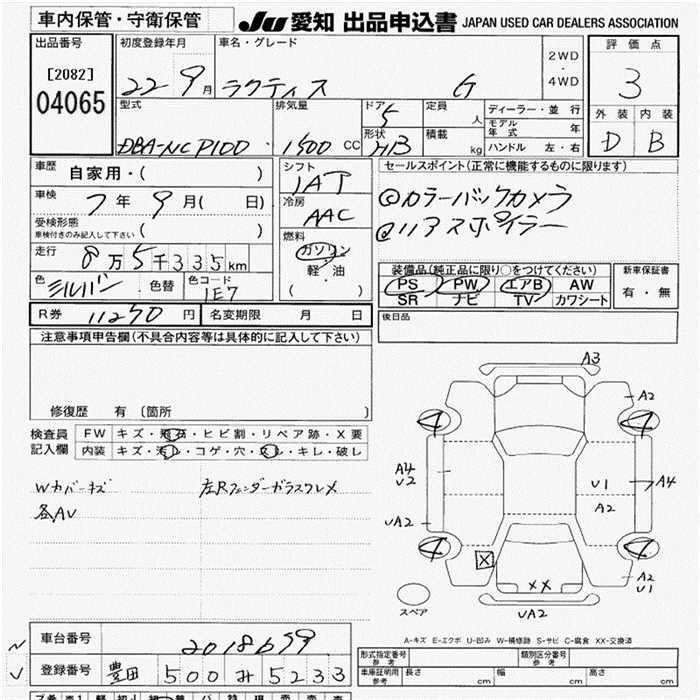 車内保管・守衛保管
JU 愛知 出品申込書 JAPAN USED CAR DEALERS ASSOCIATION
出品番号
[2082]
04065
初度登録年月
22 9月
車名・グレード
ラクティス G
2WD
・
4WD
評価点
3
外装 内装
D B
型式
DBA-NCP100
排気量
1500 CC
ドア
5
形状
HB
定員
人
積載
kg
ディーラー・並行
モデル年式 年
ハンドル 左・右
車歴
自家用・( )
車検
7年 9月( 日)
受検形態
車検付きのみ記入して下さい ( )
走行
8万5千335km
色
シルバー
色替
色コード
1E7
シフト
IAT
冷房
AAC
燃料
ガソリン
軽・油
( )
セールスポイント(正常に機能するものに限ります)
◎カラーバックカメラ
@リアスポイラー
装備品(純正品に限り○をつけてください)
PS PW エアB AW
SR ナビ TV カワシート
新車保証書
有・無
R券 11250円
名変期限 月 日
後日品
注意事項申告欄(不具合内容等は具体的に記入して下さい)
修復歴 有 〔箇所 〕
検査員
記入欄
FW キズ・飛石・ヒビ割・リペア跡・X要
内装 キズ・汚レ・コゲ・穴・スレ・キレ・破レ
Wカバーキズ
各AU
左Rフェンダーガラスワレメ
A3
A2
4
4
A4
U2
U1
A4
A2
UA2
4
4
X
XX
A2
U1
UA2
スペア
A-キズ E-エクボ U-凹み W-補修跡 S-サビ C-腐食 XX-交換済
車台番号
2018699
登録番号
豊田 500 み 5233
形式指定番号
参考
類別区分番号
参考
車庫証明用
参考
長さ cm
幅 cm
高さ cm